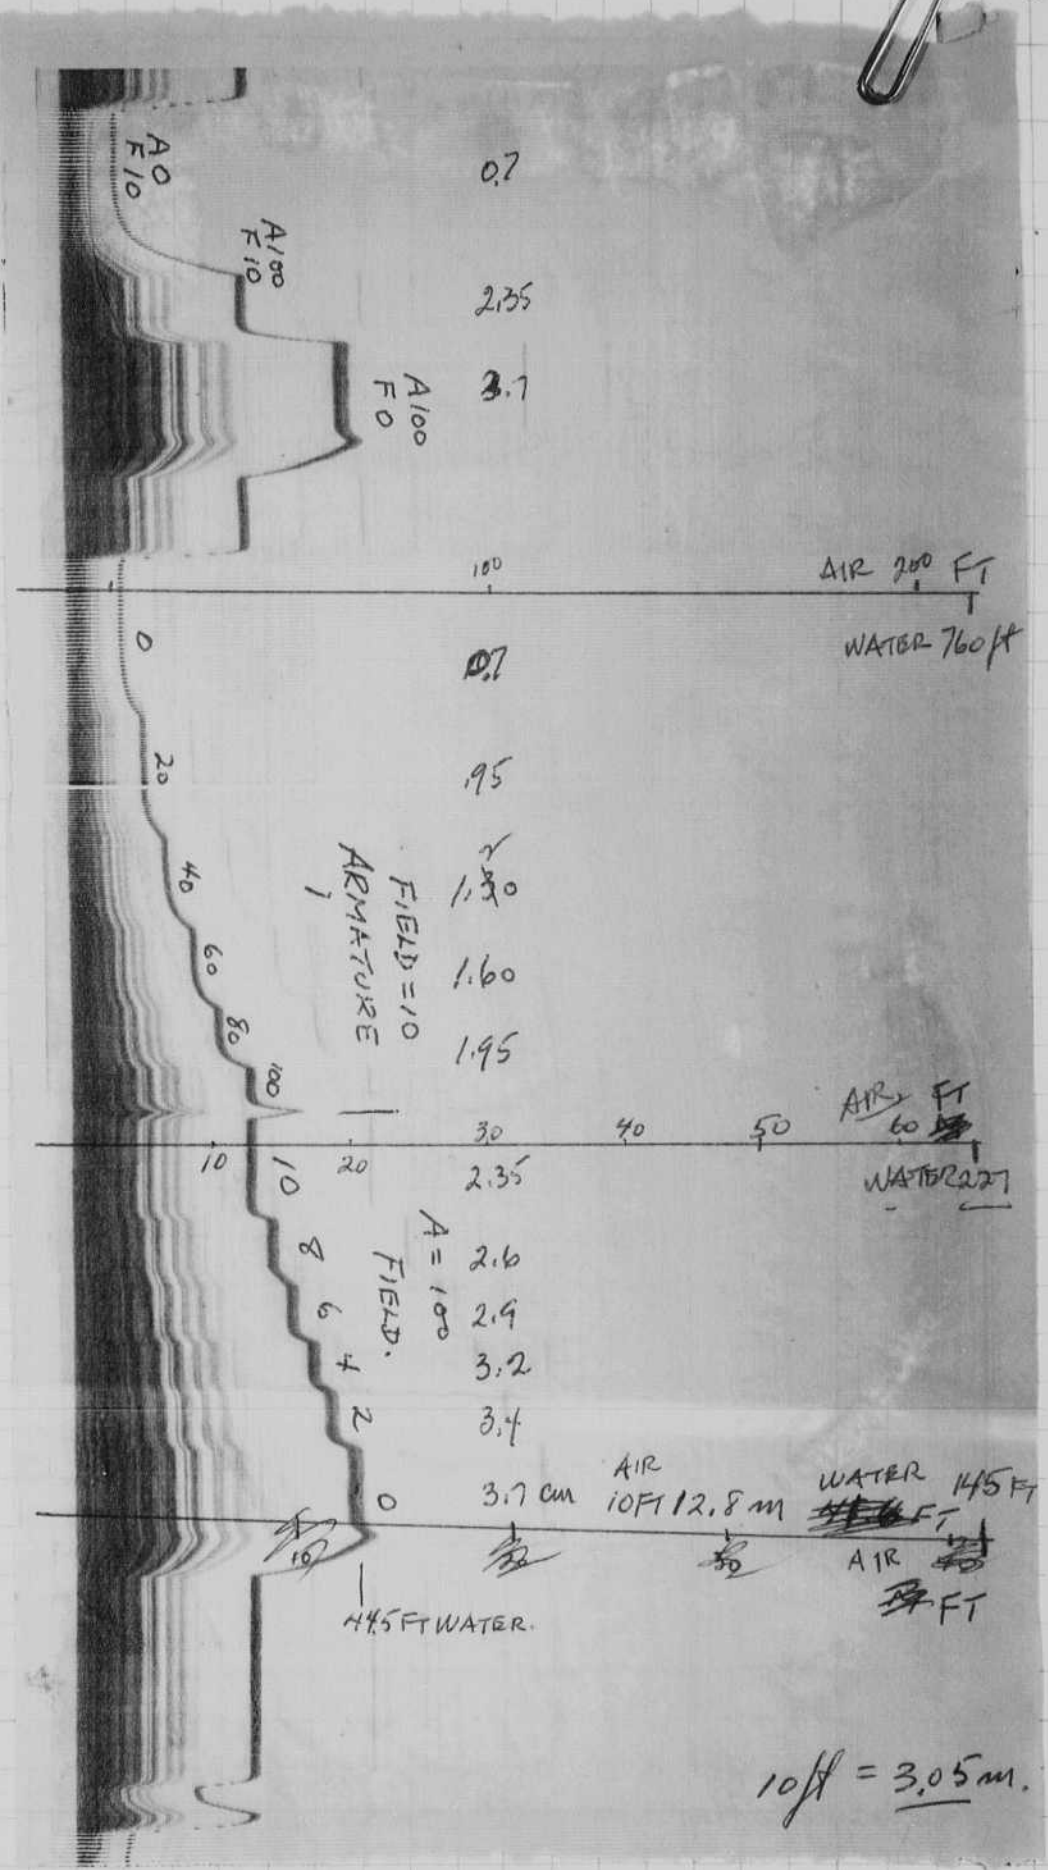 A0
F10
0.7
A100
F10
2.35
A100
F0
3.7
100
AIR 200 FT
WATER 760ft
0
0.7
20
.95
40
60
1.60
80
1.95
100
FIELD=10
ARMATURE
AIR, FT
10
20
30
40
50
60
WATER 227
10
2.35
8
2.6
6
2.9
4
3.2
2
3.4
0
3.7 cm
A=100
FIELD.
AIR
10FT 12.8 m
WATER 145 FT
FT
AIR
FT
445 FT WATER.
10ft = 3.05m.